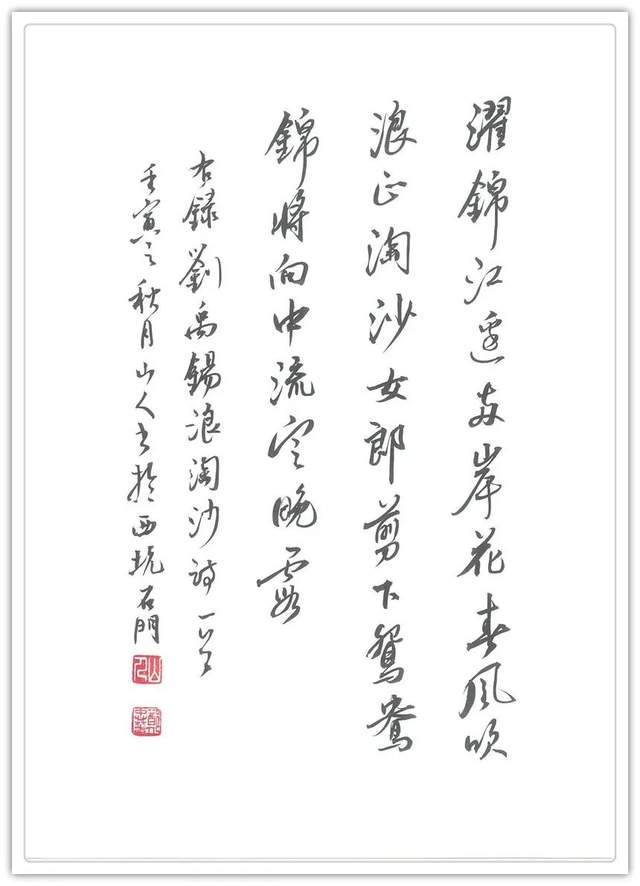 濯錦江邊兩岸花春風吹
浪正淘沙女郎剪下鴛鴦
錦將向中流定晚霞
右録劉禹錫浪淘沙詩一首
壬寅之秋月山人書於西坑石門
山人